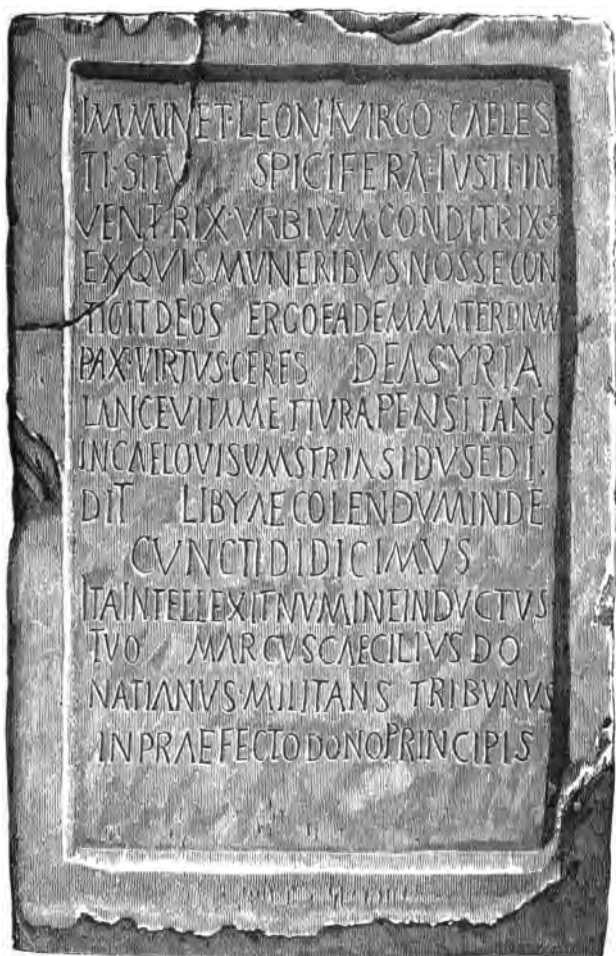 IMMINET·LEONI·VIRGO·CAELES
TI·SITV SPICIFERA·IVSTI·IN
VENTRIX·VRBIVM·CONDITRIX
EX·QVIS·MVNERIBVS·NOSSE CON
TIGIT DEOS ERGO EADEM MATER DIVVM
PAX·VIRTVS·CERES DEA SYRIA
LANCE VITAM ET IVRA PENSITANS
IN CAELO VISVM SYRIA SIDVS EDI
DIT LIBYAE COLENDVM INDE
CVNCTI DIDICIMVS
ITA INTELLEXIT NVMINE INDVCTVS
TVO MARCVS CAECILIVS DO
NATIANVS·MILITANS TRIBVNVS
IN PRAEFECTO DONO PRINCIPIS